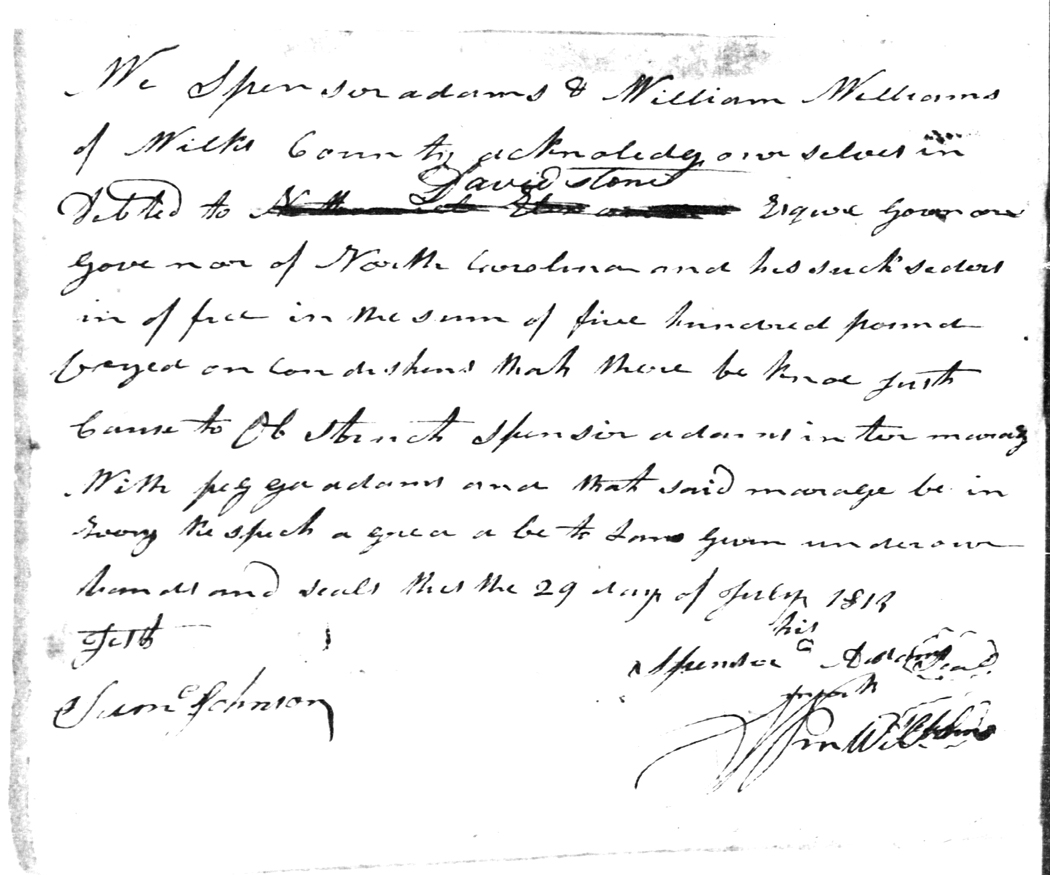 We Spensor adams & William Williams
of Wilks County acknoledg our selves in
David stone
Debted to Esqure Govornor
Govenor of North Carolina and his suckseders
in of fice in the sum of five hundred pound
voyed on condishens that there be knoe just
Cause to Ob struct Spensir adams in ter marag
With peggy adams and that said marage be in
Every Respeck a grea a be to Law Given under our
hands and seals this the 29 day of July 1813
Test
his
Spensir Adams Seal
mark
Sam.l Johnson
Wm Williams